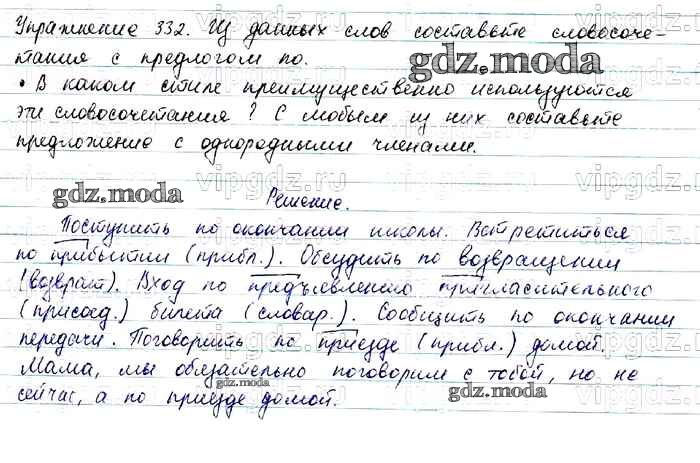 Упражнение 332. Из данных слов составьте словосоче-
тания с предлогом по.
• В каком стиле преимущественно используются
эти словосочетания? С любым из них составьте
предложение с однородными членами.
Решение.
Поступить по окончании школы. Встретиться
по прибытии (прибл.). Обсудить по возвращении
(возврат). Вход по предъявлению пригласительного
(присоед.) билета (словар.). Сообщить по окончании
передачи. Поговорить по приезде (прибл.) домой.
Мама, мы обязательно поговорим с тобой, но не
сейчас, а по приезде домой.
gdz.moda
gdz.moda
gdz.moda
gdz.moda
vipgdz.ru